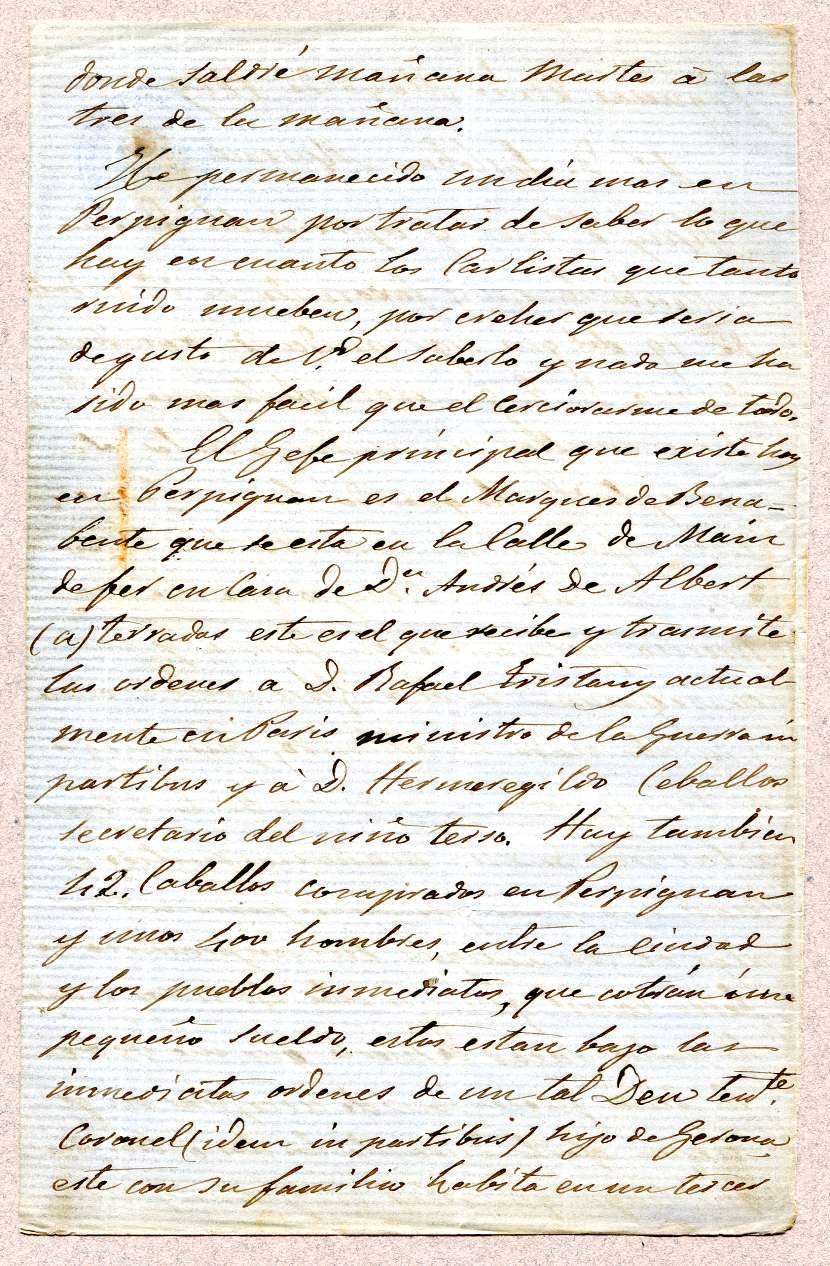 donde saldré mañana Martes á las
tres de la mañana.
He permanecido un dia mas en
Perpignan por tratar de saber lo que
hay en cuanto los Carlistas que tanto
ruido mueben, por creher que seria
de gusto de V.d el saberlo y nada me ha
sido mas facil que el cerciorarme de todo.
El Gefe principal que existe hoy
en Perpignan es el Marques de Bena-
bente que se esta en la Calle de Main
de fer en Casa de D.n Andrés De Albert
(a) terradas este es el que recibe y trasmite
las ordenes a D. Rafael Tristany actual
mente en Paris ministro de la Guerra in
partibus y á D. Hermenegildo Ceballos
secretario del niño terso. Hay tambien
42. Caballos comprados en Perpignan
y unos 400 hombres, entre la ciudad
y los pueblos inmediatos, que cobran
pequeño sueldo, estos estan bajo las
inmediatas ordenes de un tal Deu ten.te
Coronel (idem in partibus) hijo de Gerona,
este con su familia habita en un tercer